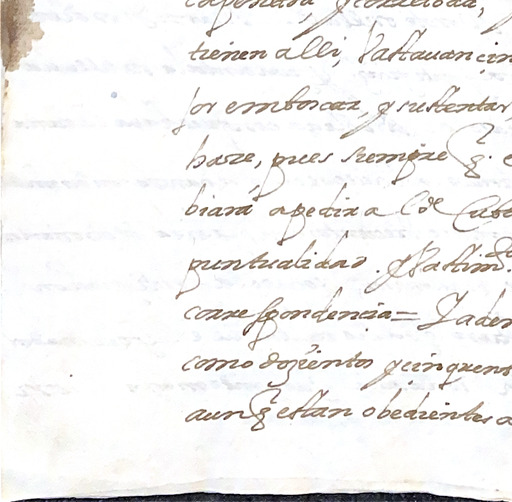 tienen alli, bastauan çin
por emboscar, y sustentar
haze, pues siempre q̃.
biará a pedir a
puntualidad. y bastim.to
correspondencia= Y adem
como dozientos y cinquenta
aunq̃ estan obedientes a